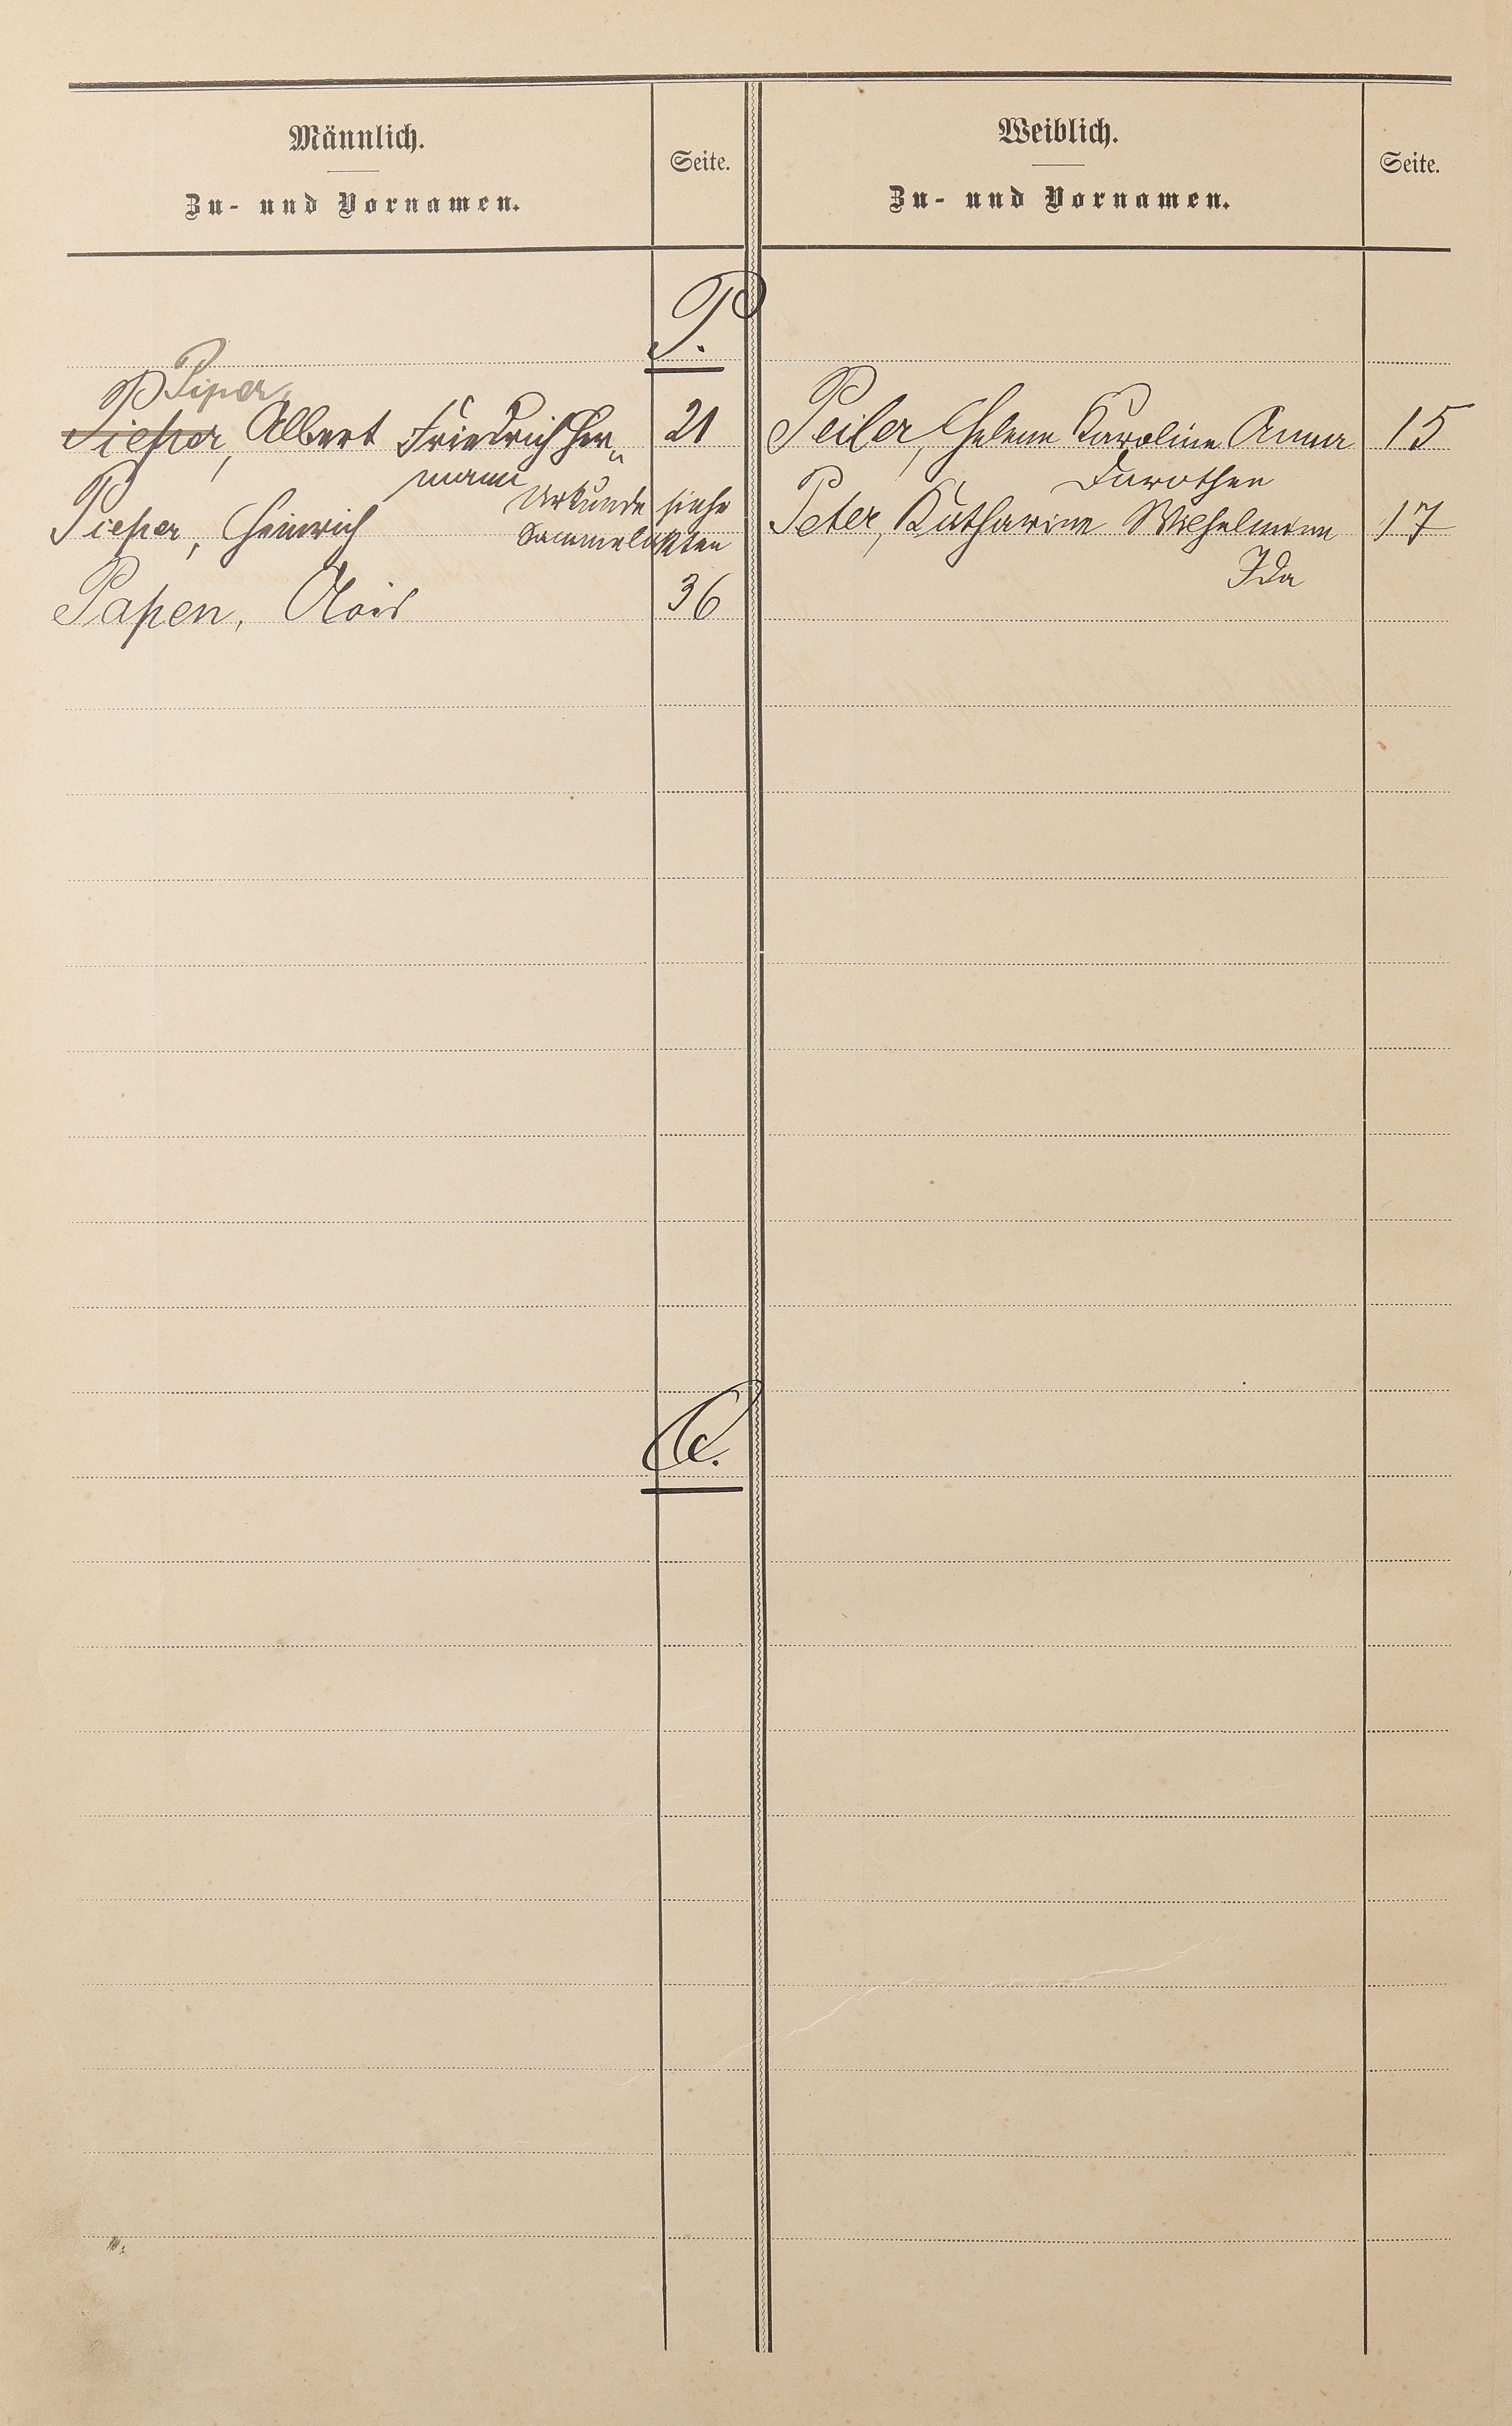 Männlich.
Zu- und Vornamen.
Seite.
Weiblich.
Zu- und Vornamen.
Seite.
P.
Piper,
Pieper, Albert Friedrich Her„ 21
mann
Pieper, Heinrich Urkunde siehe
Sammelakten
Papen, Alois 36
Peiler, Helene Karoline Anna 15
Dorothea
Peter, Katharine Wilhelmine 17
Ida
Q.